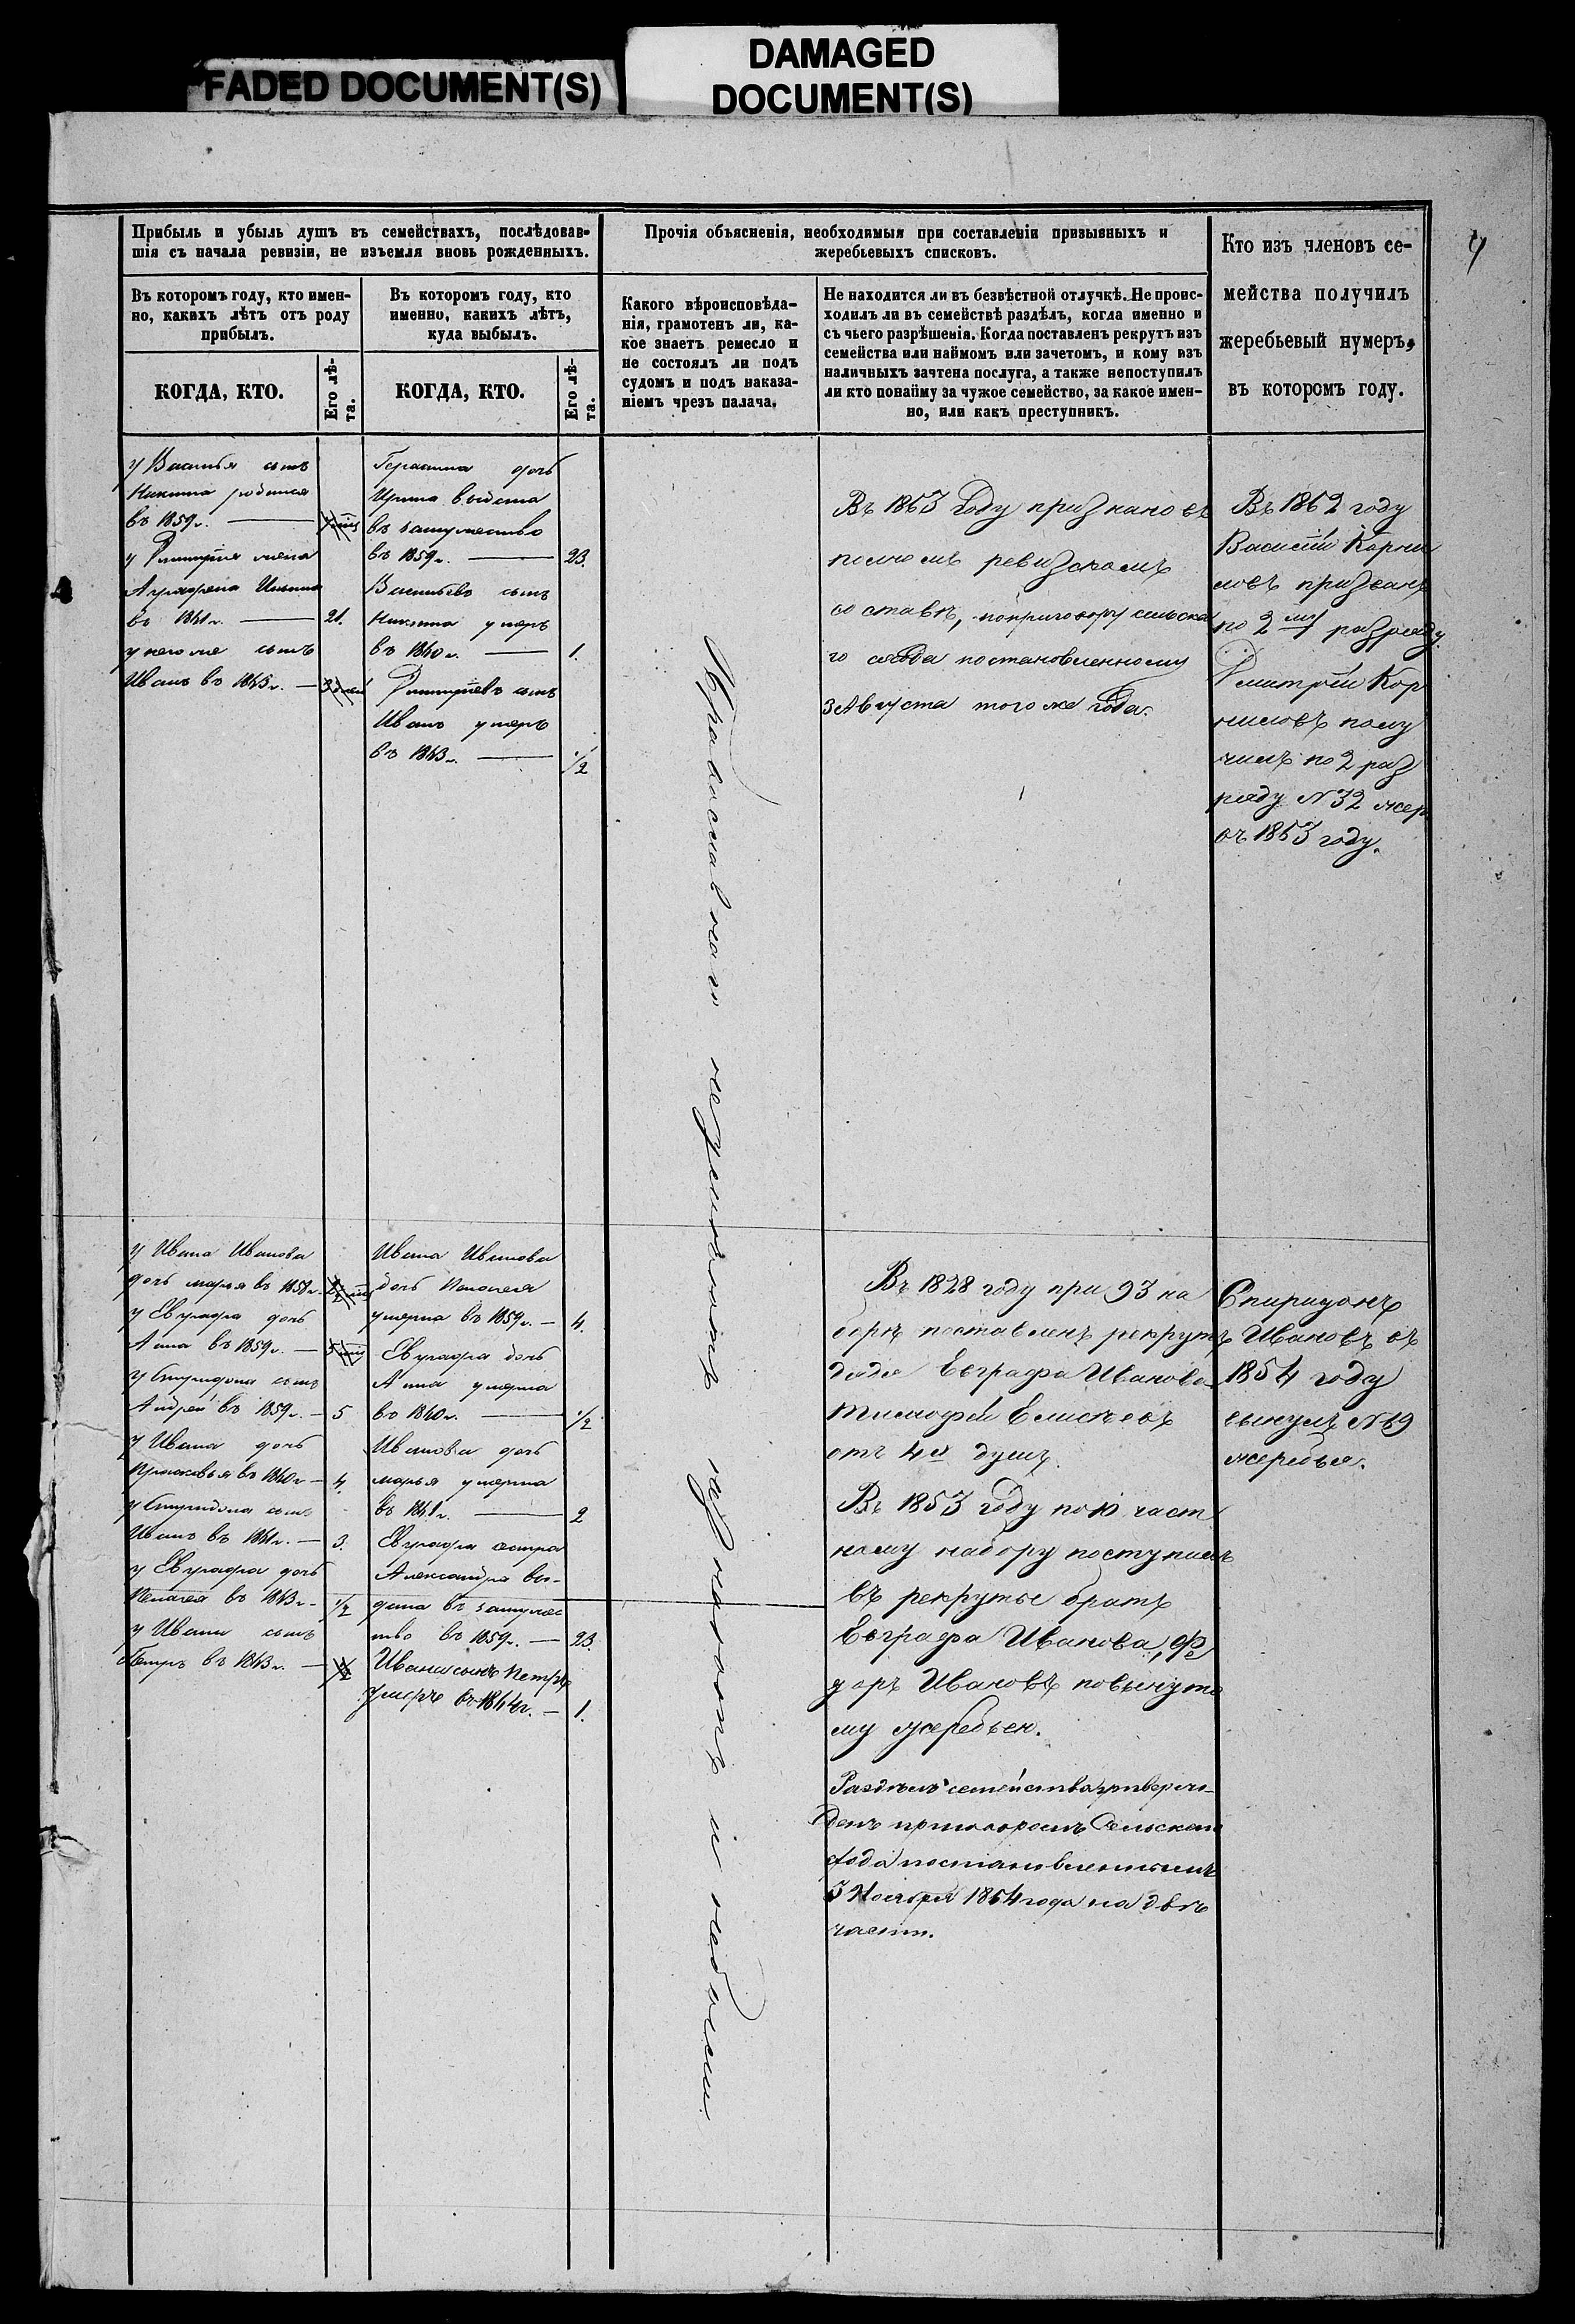 FADED DOCUMENT(S)
DAMAGED
DOCUMENT(S)
Прибыль и убыль душъ въ семействахъ, послѣдовав-
шія съ начала ревизіи, не изъемля вновь рожденныхъ.
Въ которомъ году, кто имен-
но, какихъ лѣтъ отъ роду
прибылъ.
Въ которомъ году, кто
именно, какихъ лѣтъ,
куда выбылъ.
КОГДА, КТО.
Его лѣ-
та.
КОГДА, КТО.
Его лѣ-
та.
Прочія объясненія, необходимыя при составленіи призывныхъ и
жеребьевыхъ списковъ.
Какого вѣроисповѣда-
нія, грамотенъ ли, ка-
кое знаетъ ремесло и
не состоялъ ли подъ
судомъ и подъ наказа-
ніемъ чрезъ палача.
Не находится ли въ безвѣстной отлучкѣ. Не проис-
ходилъ ли въ семействѣ раздѣлъ, когда именно и
съ чьего разрѣшенія. Когда поставленъ рекрутъ изъ
семейства или наймомъ или зачетомъ, и кому изъ
наличныхъ зачтена послуга, а также непоступилъ
ли кто понайму за чужое семейство, за какое имен-
но, или какъ преступникъ.
Кто изъ членовъ се-
мейства получилъ
жеребьевый нумеръ,
въ которомъ году.
у Василья сынъ
Никита родился
въ 1859 г.
у Дмитрія жена
Аграфена Ильина
въ 1861 г. 21.
у него же сынъ
Иванъ въ 1863 г.
Герасима дочь
Ирина выдана
въ замужество
въ 1859 г. 23.
Васильевъ сынъ
Никита умеръ
въ 1860 г. 1.
Дмитріевъ сынъ
Иванъ умеръ
въ 1863 г. 1/2
Православнаго
Въ 1863 году признано въ
полномъ ревизскомъ
составѣ, поприговору сельска
го схода постановленному
3 Августа того же года.
Въ 1862 году
Василій Корни
ловъ призванъ
по 2му разряду.
Дмитрій Кор
ниловъ полу
чилъ по 2 раз
ряду №32 жер
въ 1863 году.
у Ивана Иванова
дочь марья въ 1858 г.
у Евграфа дочь
Анна въ 1859 г.
у Спиридона сынъ
Андрей въ 1859 г. 5
у Ивана дочь
Прасковья въ 1860 г. 4.
у Спиридона сынъ
Иванъ въ 1861 г. 3.
у Евграфа дочь
Пелагея въ 1863 г. 1/2
у Ивана сынъ
Петръ въ 1863 г.
Ивана Иванова
дочь Пелагея
умерла въ 1859 г. 4.
Евграфа дочь
Анна умерла
въ 1860 г. 1/2
Иванова дочь
марья умерла
въ 1861 г. 2
Евграфа сестра
Александра вы-
дана въ замужес
тво въ 1859 г. 23.
Ивана сынъ Петръ
умеръ въ 1864 г. 1.
Въ 1828 году при 93 на
борѣ поставленъ рекрутъ
дядя Евграфа Иванова
Тимофей Елисѣевъ
отъ 4х душъ.
Въ 1853 году по 10 част
ному набору поступилъ
въ рекруты братъ
Евграфа Иванова, Фе
доръ Ивановъ повынуто
му жеребью.
Раздѣлъ семейства утвержс-
денъ приговоромъ Сельскаго
схода постановленнымъ
3 Ноября 1864 года на двѣ
части.
Спиридонъ
Ивановъ въ
1854 году
вынулъ №69
жеребья.